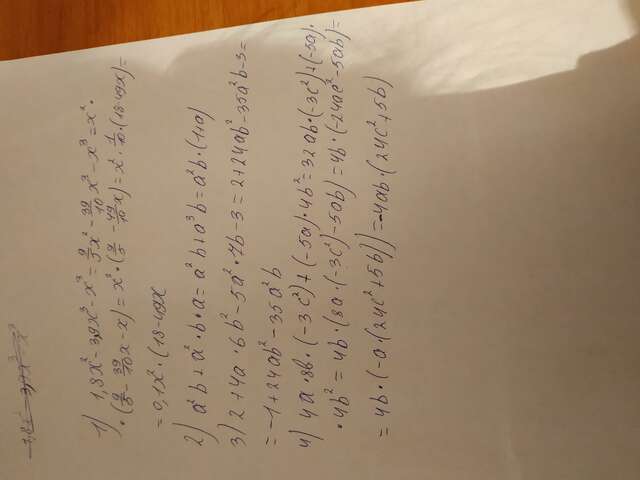 1) 1,8x² - 3,9x³ - x³ = 9/5x² - 39/10x³ - x³ = x² ·
· (9/5 - 39/10x - x) = x² · (9/5 - 49/10x) = x² · 1/10 · (18-49x) =
= 0,1x² · (18-49x
2) a²b + a² · b · a = a²b + a³b = a²b · (1+a)
3) 2 + 4a · 6b² - 5a² · 7b - 3 = 2 + 24ab² - 35a²b - 3 =
= -1 + 24ab² - 35a²b
4) 4a · 8b · (-3c²) + (-5a) · 4b² = 32ab · (-3c²) + (-5a) ·
· 4b² = 4b · (8a · (-3c²) - 5ab) = 4b · (-24ac² - 5ab) =
= 4b · (-a · (24c² + 5b)) = -4ab · (24c² + 5b)